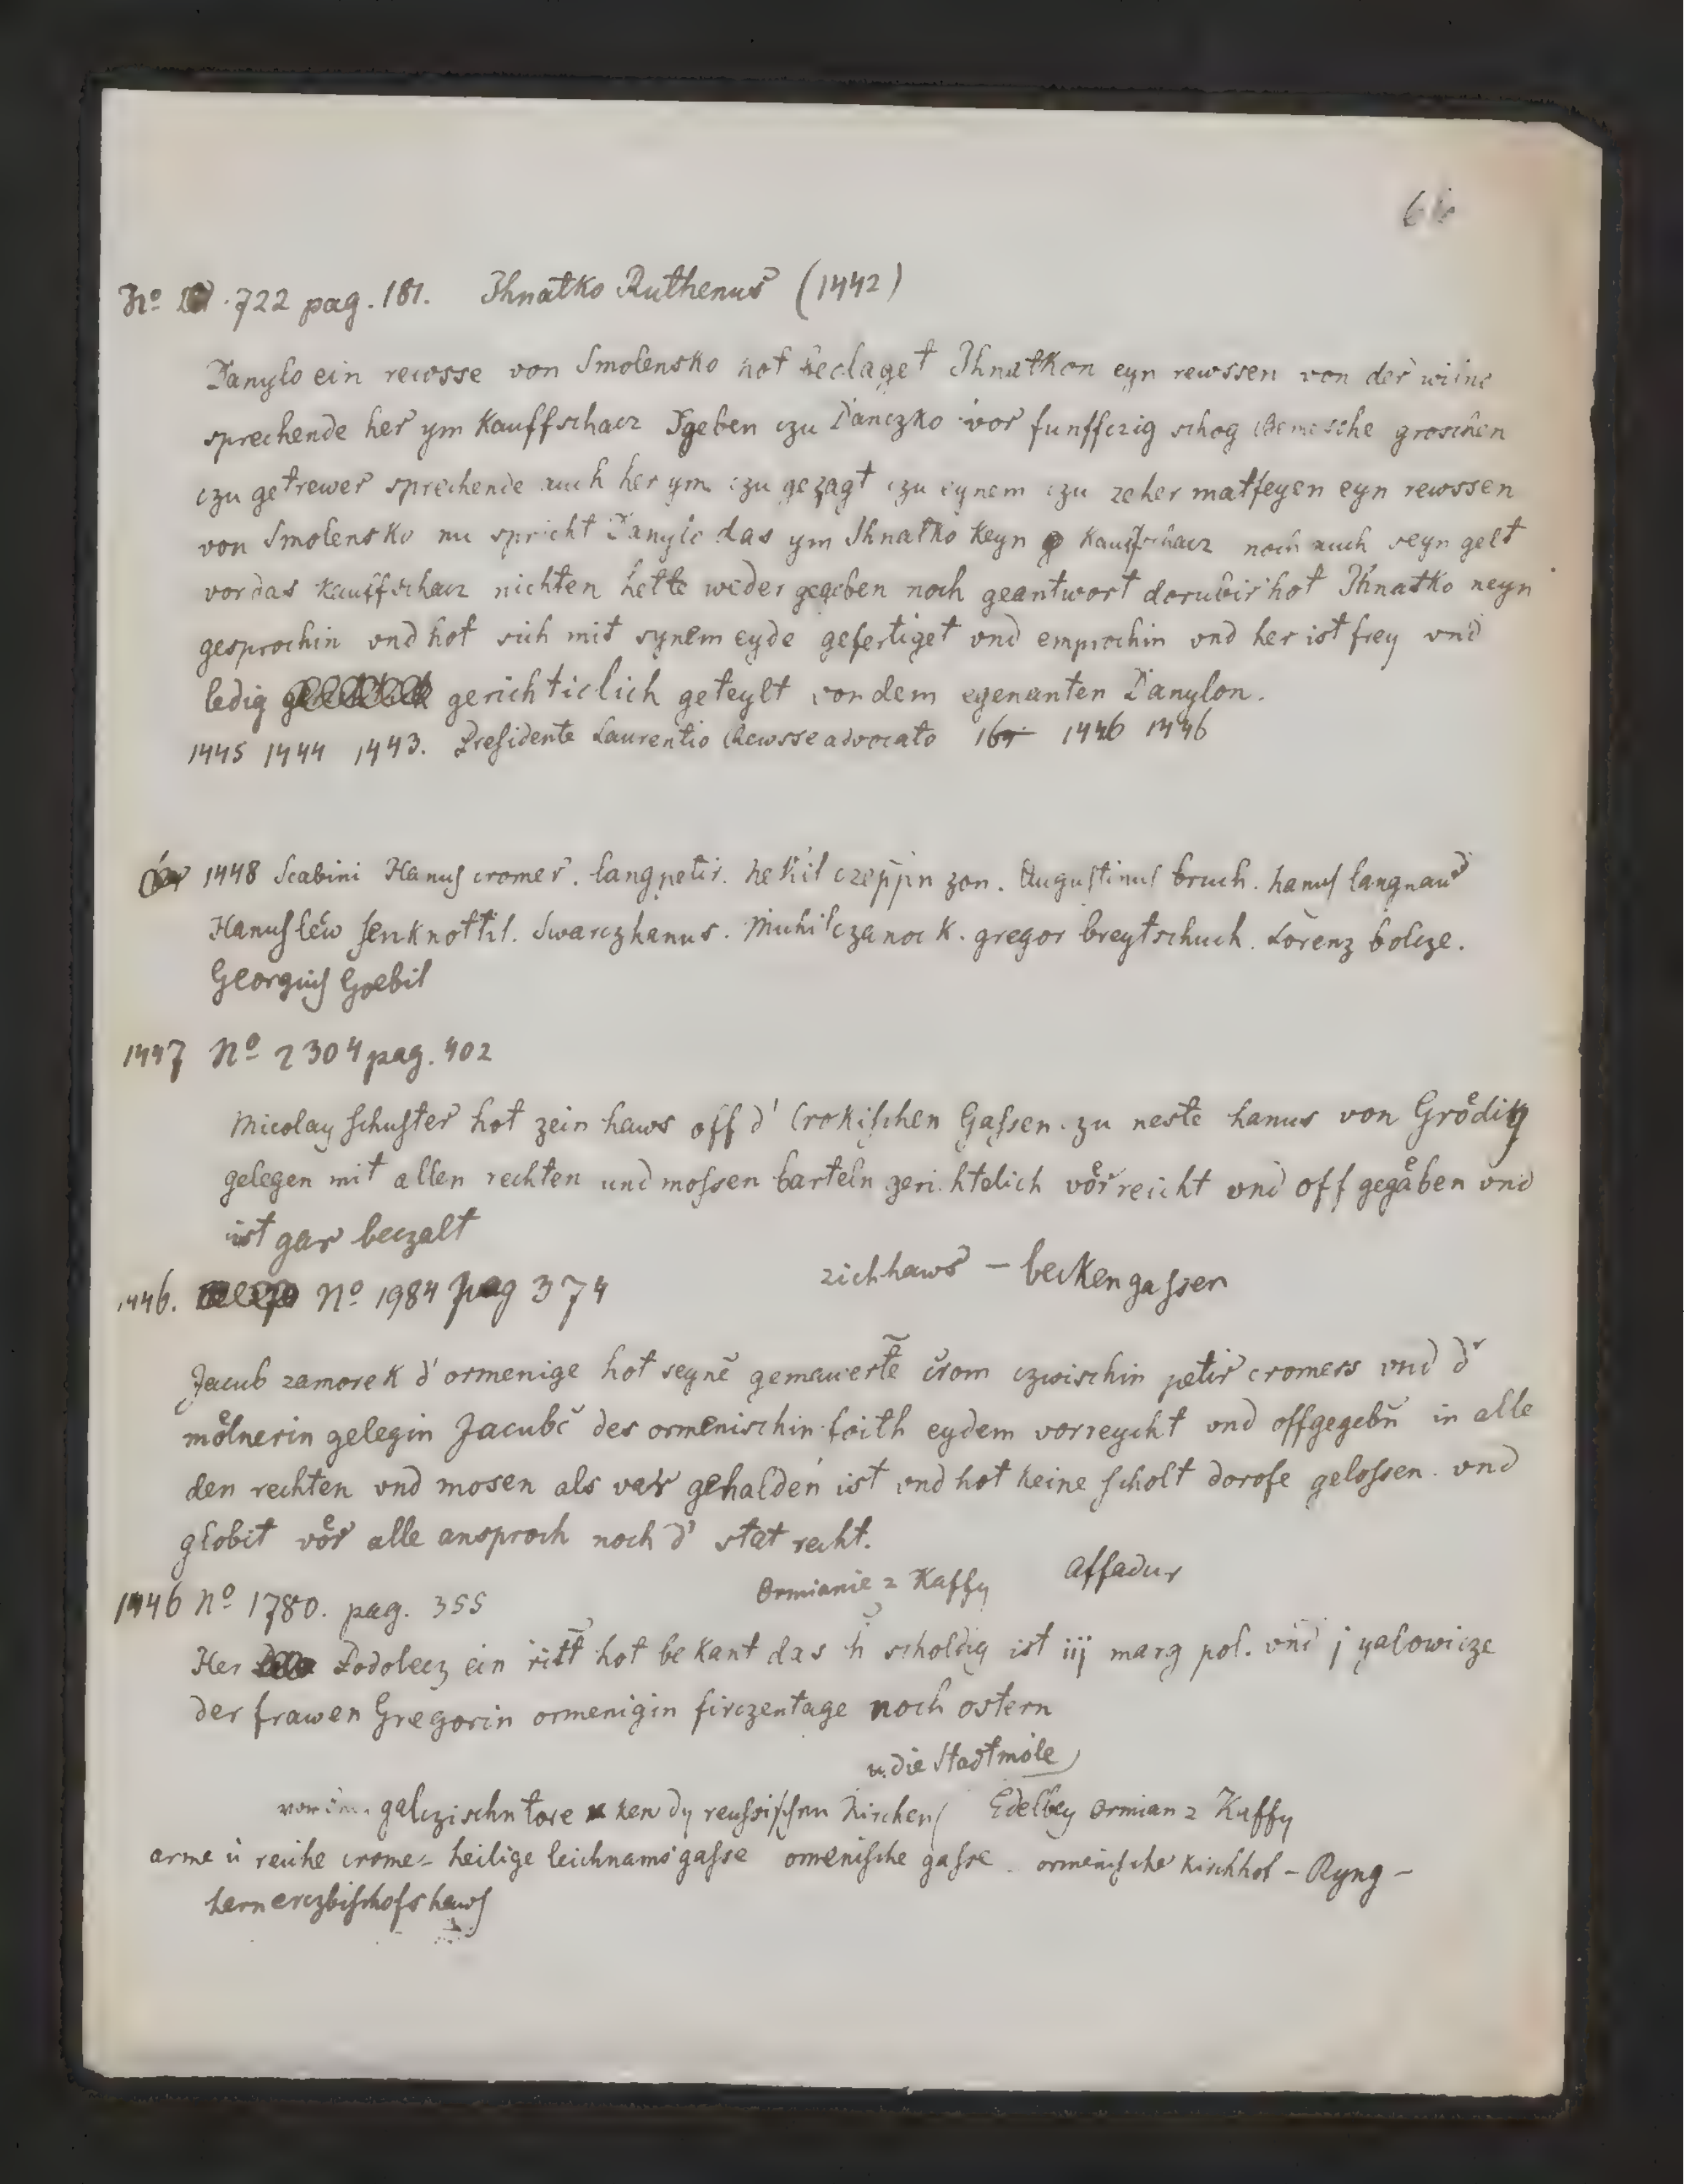 No 722 pag. 181. Ihnatko Ruthenus (1442)
Danylo ein rewsse von Smolensko hot beclaget Ihnatkon eyn rewssen von der wilne
sprechende her ym kauffschacz geben czu Danczko vor funffczig schog Bemesche groschen
czu getrewer sprechende auch her ym czu gezagt czu eynem czu zeher matfeyen eyn rewssen
von Smolensko nu spricht Danylo das ym Ihnatko keyn kauffschacz noch auch seyn gelt
vor das kauffschacz nichten hette weder gegeben noch geantwort dorubir hot Ihnatko neyn
gesprochin vnd hot sich mit synem eyde gefertiget vnd emprochin vnd her ist frey vnd
ledig gerichticlich geteylt von dem egenanten Danylon.
1445 1444 1443. Presidente Laurentio Rewsse advocato 1446 1446
1448 Scabini Hanus cromer. langpetir. hekil czeppin zon. Augustinus bruch. hanus langnaw
Hanus lew senknottil. Swarczhanus. Michilczanock. gregor breytschuch. Lorenz bolcze.
Georgius Goebil
1447 No 2304 pag. 402
Nicolay schuster hot zein haws off d' Crokischen Gassen zu neste hanus von Grödig
gelegen mit allen rechten und mossen barteln gerichtelich vorreicht vnd off gegaben vnd
ist gar beczalt
zichhaws – beckengassen
1446. No 1984 pag 374
Jacub zamorek d' ormenige hot seynē gemauertē crom czwischin petir cromers vnd d'
molnerin gelegin Jacubē des ormenischin foith eydem vorreycht vnd offgegebn in alle
den rechten vnd mosen als vor gehalden ist vnd hot keine scholt dorofe gelossen. vnd
globit vor alle ansproch noch d' stat recht.
Ormianie z Kaffy Affadur
1446 No 1780. pag. 355
Her Podolecz ein ritt hot bekant das h scholdig ist iij marg pol. vnd j yalowicze
der frawen Gregorin ormenigin firczentage noch ostern
u. die Stadtmole
galczischn tore ken dy reussischen Kirchen Edelbey ormian z Kaffy
arme ü reiche crome – heilige leichnams gasse omenische gasse. ormenische Kirchhof – Ryng –
hern erczbischofs haws